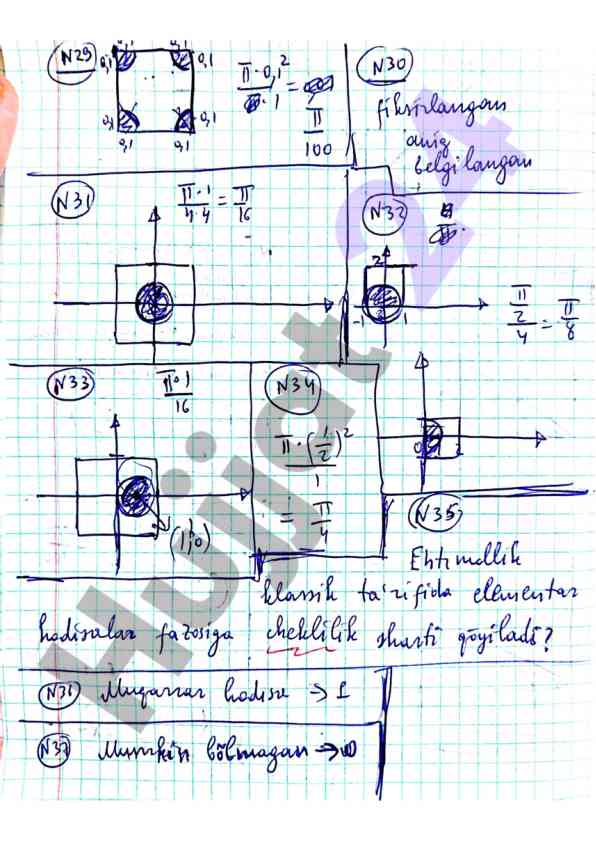 N29
0,1 0,1
0,1 0,1
0,1 0,1
π·0,1²
1
=
π
100
N30
fiksirlangan
aniq
belgilangan
N31
π·1
4·4
= π
16
N32
2
-1 1
π
2
4
= π
8
N33
π·1
16
(1;0)
N34
π·(1/2)²
1
= π
4
0 2
N35
Ehtimollik
klassik ta'rifida elementar
hodisalar fazosiga cheklilik sharti qo'yiladi?
Muqarrar hodisa → 1
N37 Mumkin bo'lmagan → 0
Hujjat 24